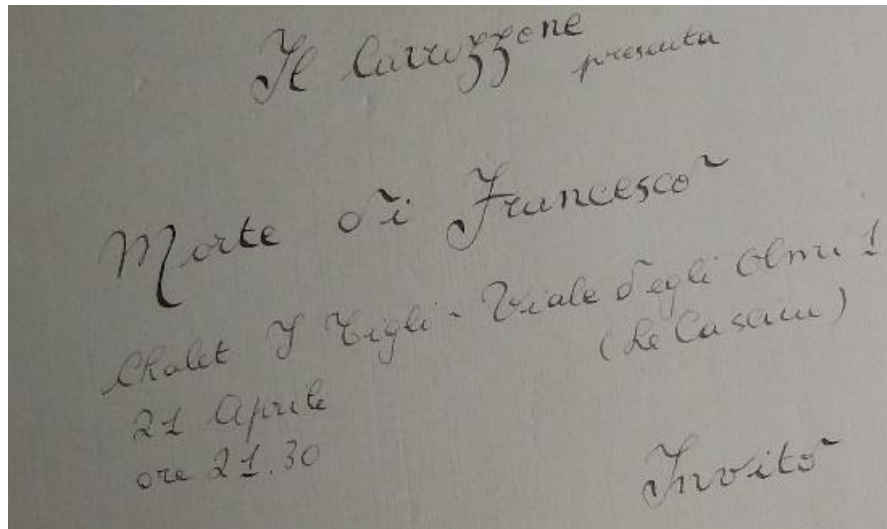 Il Carrozzone
presenta
Morte di Francesco
Chalet I Tigli - Viale degli Olmi 1
(Le Cascine)
21 Aprile
ore 21.30
Invito